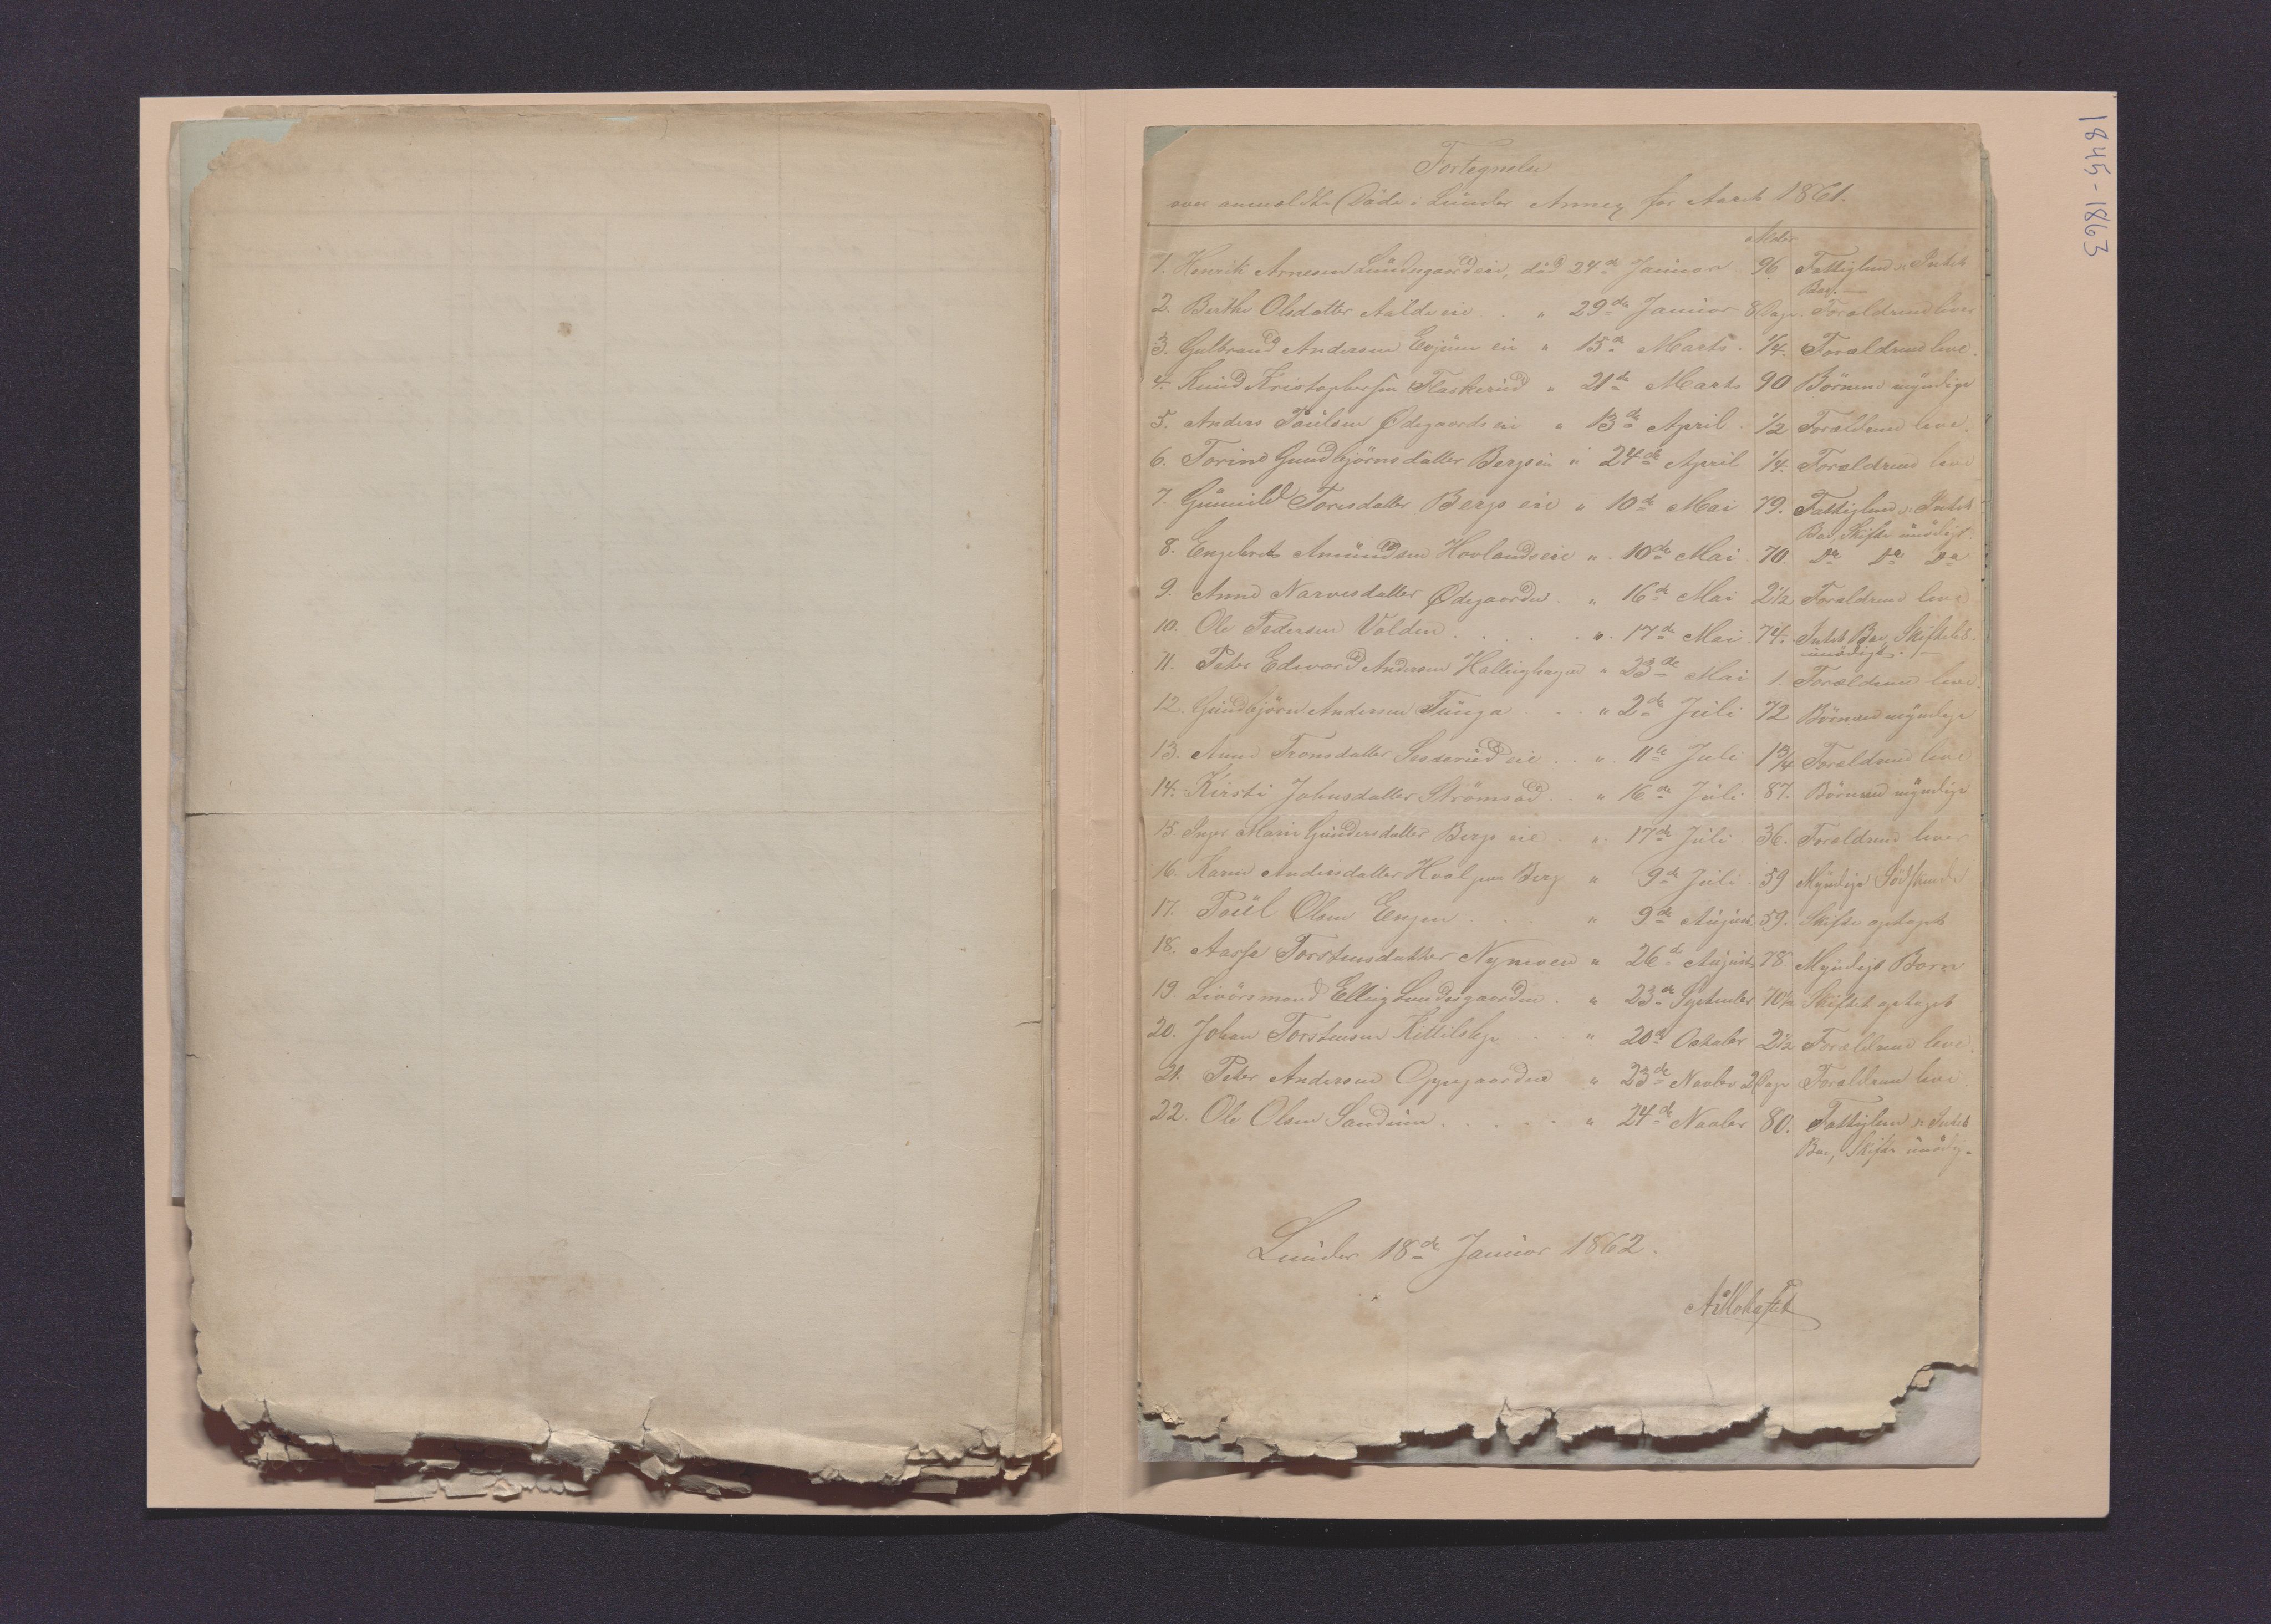 1845-1863
Fortegnelse
over anmeldte Döde i Lunder Annex for Aaret 1861.
Alder
1. Henrik Arnesen Lundesgaardeie, död 24de Januar 96. Fattiglem, Intet
Bo.
2. Berthe Olsdatter eie " 29de Januar 8 Dage. Forældrene lever
3. Gulbrand Andersen eie " 15de Marts. 1/4. Forældrene leve.
4. Knud Kristophersen Flaskerud " 21de Marts 90 Börnene myndige
5. Anders Paulsen Ødegaards eie " 13de April. 1/2 Forældrene leve.
6. Torine Gundbjörnsdatter Bergs eie " 24de April 1/4. Forældrene leve
7. Gunnild Toresdatter Bergs eie " 10de Mai 79. Fattiglem, Intet
Bo, Skifte unödigt.
8. Engebret Amundsen Hovlandseie " 10de Mai 70. Do Do Do
9. Anne Narvesdatter Ødegaarden " 16de Mai 2 1/2 Forældrene leve
10. Ole Pedersen Volden " 17de Mai 74. Intet Bo, Skifte
unödigt.
11. Peter Edvard Andersen Hallinghagen " 23de Mai 1. Forældrene leve.
12. Gundbjörn Andersen Tunga " 2de Juli 72 Börnene myndige
13. Anne Tronsdatter eie " 11te Juli 1 3/4 Forældrene leve
14. Kirsti Johnsdatter Strömsod " 16de Juli 87. Börnene myndige
15. Inger Marie Gundersdatter Bergs eie " 17de Juli 36. Forældrene lever
16. Karen Andersdatter Hval paa Berg " 9de Juli 59 Myndige Södskende
17. Paul Olsen Engen " 9de August 59. Skifte optaget
18. Aasse Torstensdatter Nymoen " 26de August 78. Myndige Born
19. Elling Lundesgaarden " 23de September 70 1/2 Skiftet optaget
20. Johan Torstensen " 20de October 2 1/2 Forældrene leve.
21. Peter Andersen Oppegaarden " 23de Novber 2 Dage Forældrene leve.
22. Ole Olsen Sandum " 24de Novber 80. Fattiglem, Intet
Bo, Skifte unödig.
Lunder 18de Januar 1862.